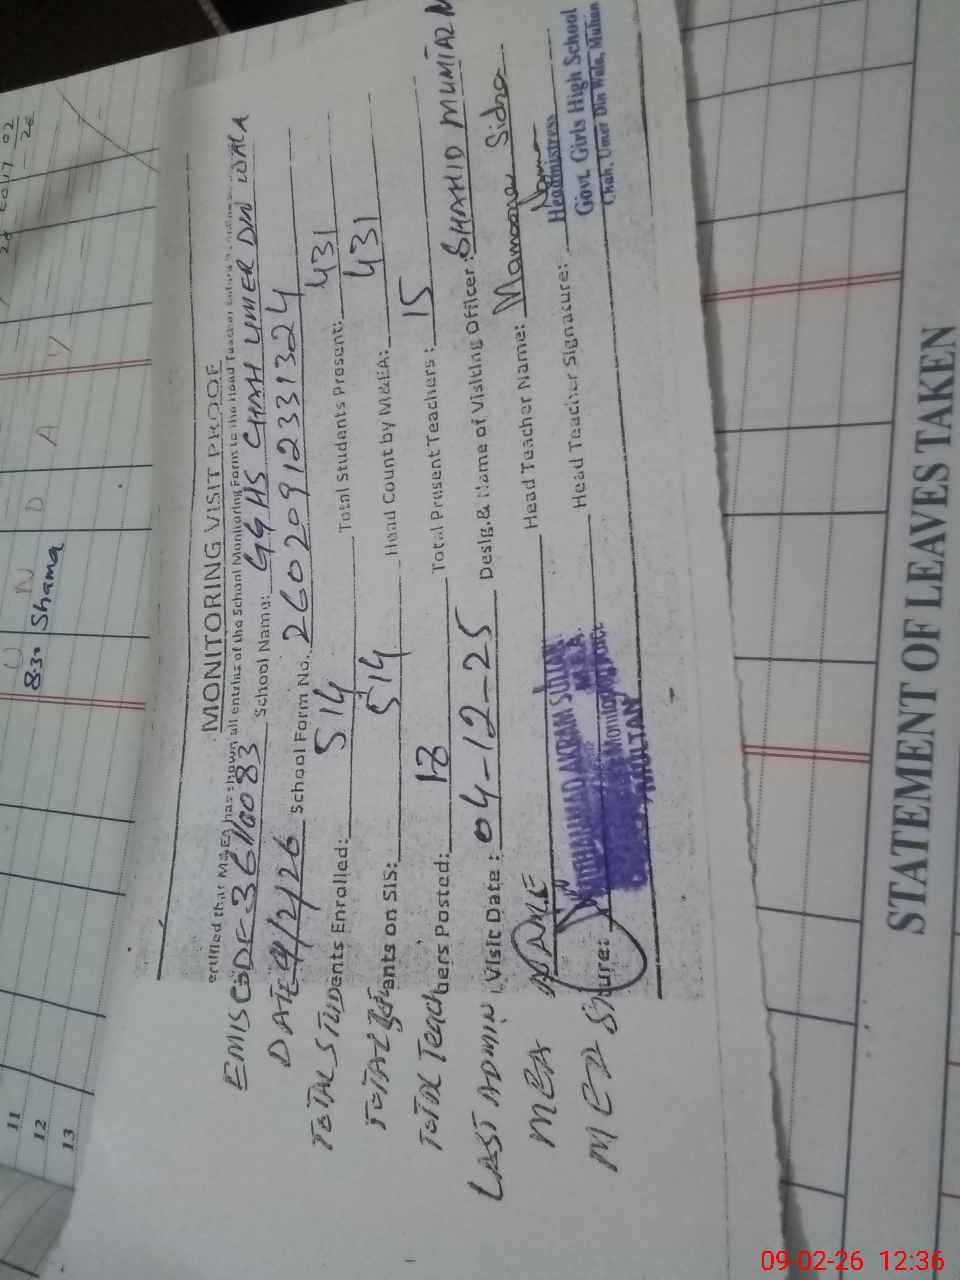 MONITORING VISIT PROOF
ertified that MEEA has shown all entries of the School Monitoring Form to the Head Teacher
EMIS CODE 36110083 School Name: GGHS CHAH UMER DIN WALA
DATE 9/2/26 School Form No. 26020912331324
TOTAL STUDENTS Enrolled: 514 Total Students Present: 431
TOTAL ants on SIS: 514 Head Count by M&EA: 431
TOTAL Teachers Posted: 18 Total Present Teachers: 15
LAST ADMIN Visit Date: 04-12-25 Desig.& Name of Visiting Officer: SHAHID MUMTAZ
MEA NAME MUHAMMAD AKRAM Head Teacher Name: Mamoona Sidra
MEA Signature: Head Teacher Signature:
M.E.A
Monitoring
MULTAN
Headmistress
Govt. Girls High School
Chah, Umer Din Wala, Multan
11
12
13
8:30 Shama
U N D A Y
02
STATEMENT OF LEAVES TAKEN
09-02-26 12:36